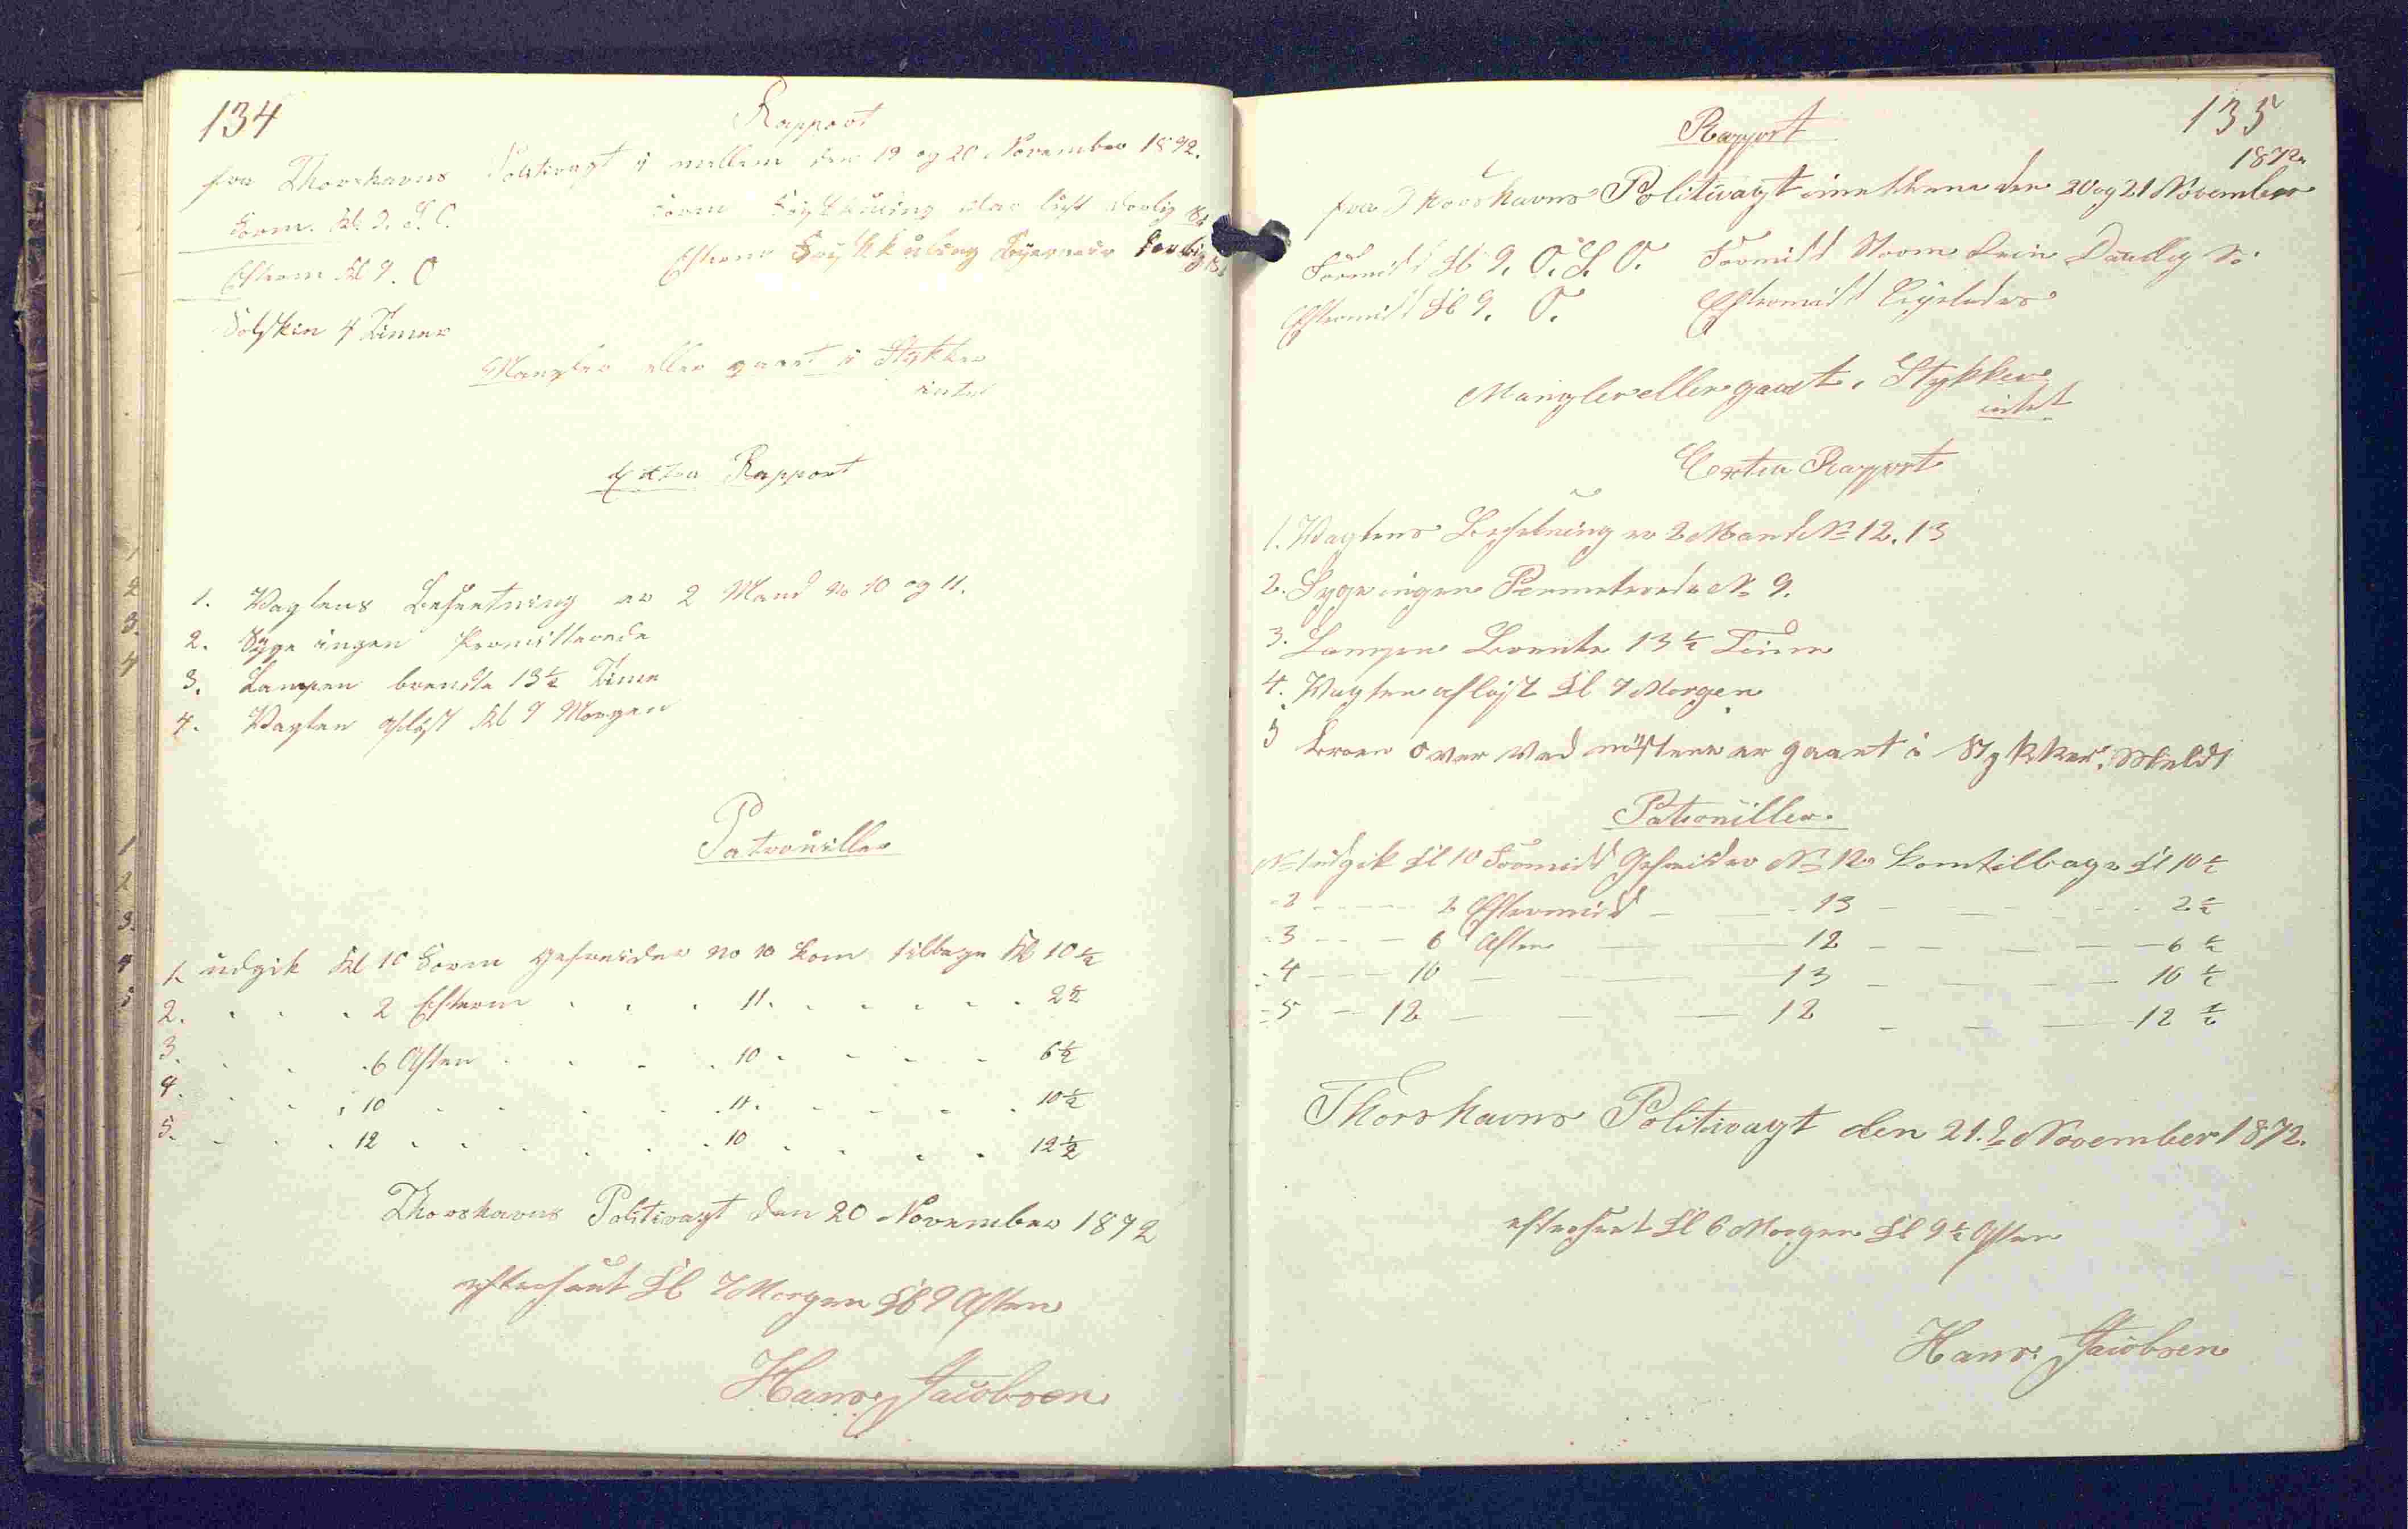 134
Rapport
fra Thorshavns Politivagt i mellem den 19 og 20 November 1872.
Form. Kl. 9. S. O.
Form Friskkuling klar luft
Efterm Kl 9. O
Efterm Friskkuling
Solskin 4 Timer
Mangler eller gaaet i Stykker
intet
Extra Rapport
1. Vagtens Besætning er 2 Mand No 10 og 11.
2. Syge ingen Permitterede
3. Lampen brændte 13½ Time
4. Vagten afløst Kl 7 Morgen
Patrouiller
1. udgik Kl 10 Form Gefreider No 10 kom tilbage Kl 10½
2. . . . 2 Efterm . . . 11. . . . . . 2½
3. . . . 6 Aften . . . 10 . . . . 6½
4. . . . 10 . . . . 11. . . . . 10½
5. . . . 12 . . . . 10 . . . . 12½
Thorshavns Politivagt den 20 November 1872
efterseet Kl 7 Morgen Kl 9 Aften
Hans Jacobsen
135
Rapport
1872
fra Thorshavns Politivagt imellem den 20 og 21 November
Formidd Kl 9. O. S. O. Formidd Storm
Eftermidd Kl 9. O. Eftermidd
Mangler eller gaaet i Stykker
intet
Extra Rapport
1. Vagtens Besætning er 2 Mand No 12. 13
2. Syge ingen Permiterede No 9.
3. Lampen Brændte 13½ Time
4. Vagten afløst Kl 7 Morgen
5 Broen over ved nøstene er gaaet i Stykker. Meldt
Patrouiller
No 1 udgik Kl 10 Formidd Gefreider No 12 kom tilbage Kl 10½
- 2 - - - 2 Eftermidd - - 13 - - - - 2½
- 3 - - - 6 Aften - - 12 - - - - 6½
- 4 - - - 10 - - - 13 - - - - 10½
- 5 - - 12 - - - 12 - - - 12½
Thorshavns Politivagt den 21. November 1872.
efterseet Kl 6 Morgen Kl 9½ Aften
Hans Jacobsen